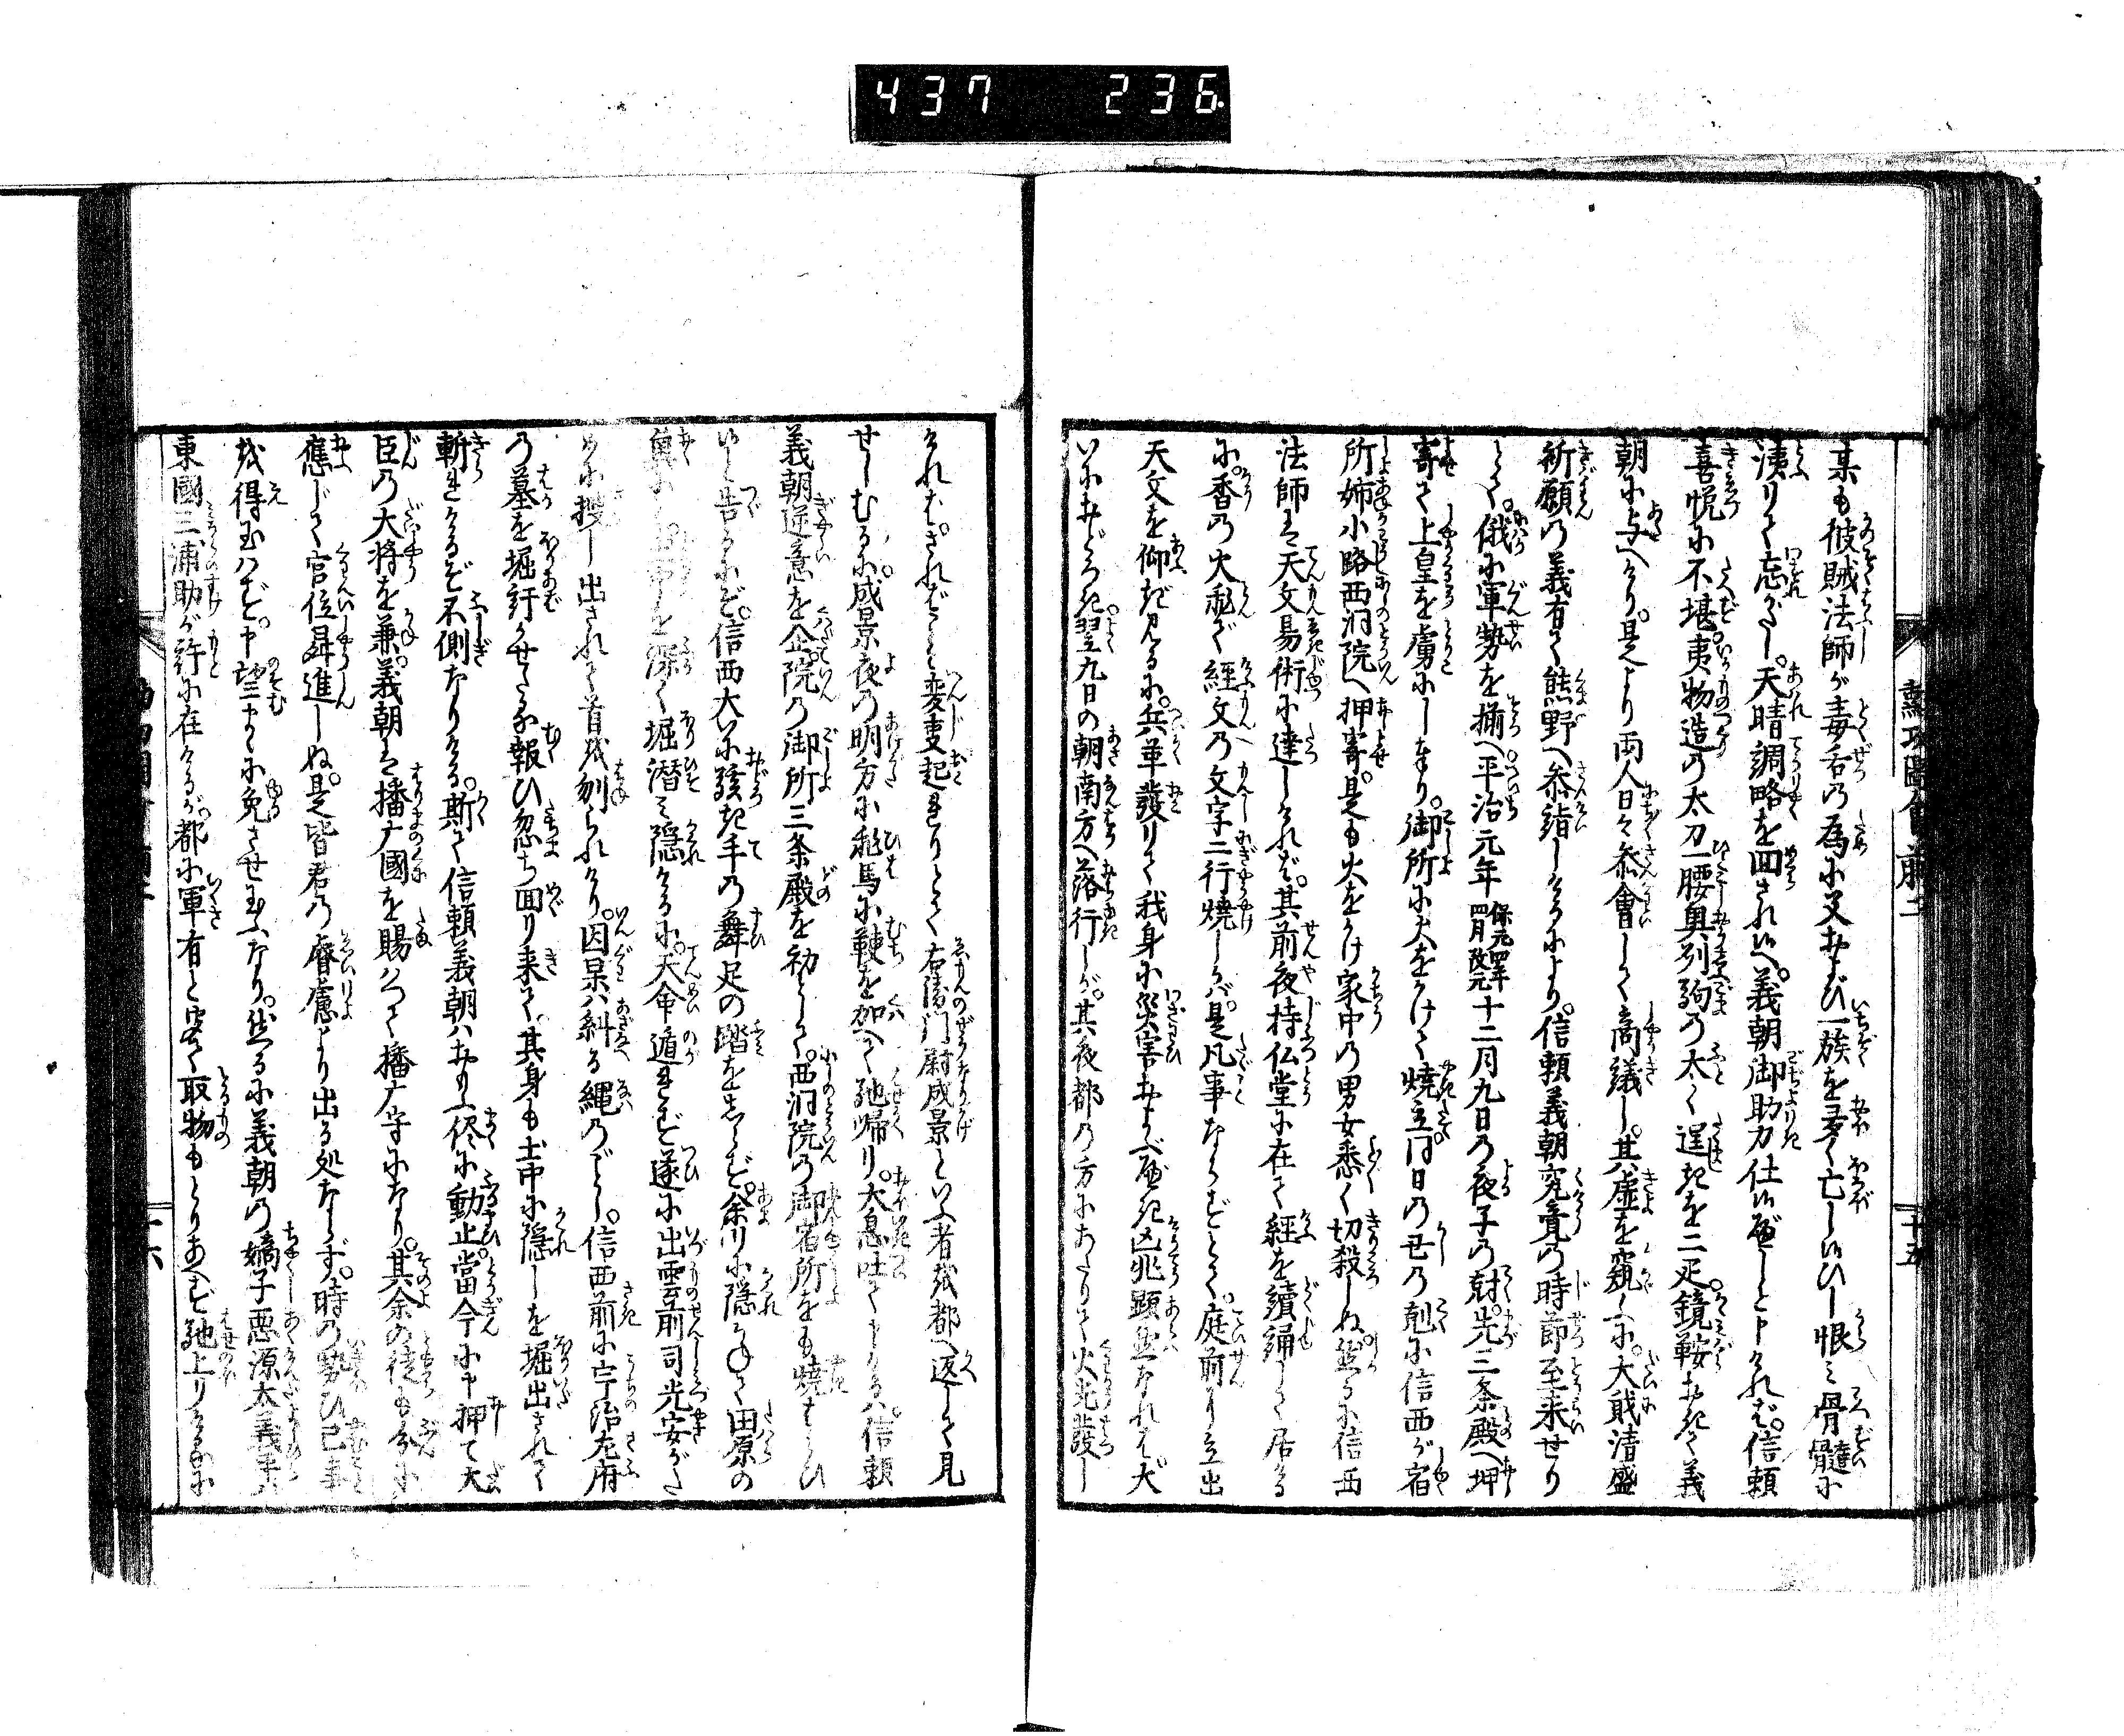 437 236
某も彼賊法師が毒舌の為に父および一族を多く亡しぬひし恨み骨髄に
洟りて忘がたし。天晴調略を回されいへ。義朝御助力仕いべしと申ければ。信頼
喜悦に不堪。夷物造の太刀一腰奥列駒の太く逞きを二疋。鏡鞍おきて義
朝に与へけり。是より両人日々参會して商議し。其虚を窺ふに。大貮清盛
祈願の義有て熊野へ参詣しけるにより。信頼義朝究竟の時節至来せり
とて。俄に軍勢を揃へ平治元年 保元四年四月改元 十二月九日の夜子の尅。先三条殿へ押
寄て上皇を虜にしまゐり。御所に火をかけて焼立同日の丑の尅に信西が宿
所姉小路西洞院へ押寄。是も火をかけ家中の男女悉く切殺しぬ。然るに信西
法師は天文易術に達しければ。其前夜持仏堂に在て經を讀誦して居る
に。香の火飛で經文の文字二行焼しかば。是凡事ならずとて。庭前に立出
天文を仰ぎ見るに。兵革發りて我身に災害およぶべき凶兆顕然なれば大
いにおどろき翌九日の朝南方へ落行しが。其夜都の方にあたりて火光發し
勲功圖會前二
十五
ければ。さればこそ変事起まりとて右衛門尉成景といふ者を都へ返して見
せしむるに。成景夜の明方に飛馬に鞭を加へて馳帰り。大息吐て申けるは信頼
義朝逆意を企。院の御所三条殿を初として。西洞院の御宿所をも焼はらひ
いと告るにぞ。信西大いに駭き手の舞足の踏を忘らず。余りに隠るゝて田原の
奥に 深く堀潜み隠けるに。天命遁まず遂に出雲前司光安がた
めに捜し出されて首を刎られけり。因果ハ糾る縄のごとし。信西前に宇治左府
の墓を堀訐かせたる報ひ忽ち回り来て。其身も土中に隠しを堀出されて
斬まけるぞ不測なりける。斯て信頼義朝ハおもふ侭に動止。當今に申押て大
臣の大将を兼。義朝は播广國を賜ハつて播广守になり。其余の徒も分に
應じて官位昇進しぬ。是皆君の睿慮より出る処ならず。時の勢ひ已事
を得玉ハず。申望まゝに免させ玉ふなり。然るに義朝の嫡子悪源太義平ハ
東國三浦助が許に在けるが。都に軍有と聞て取物もとりあへず馳上りけるに
十六